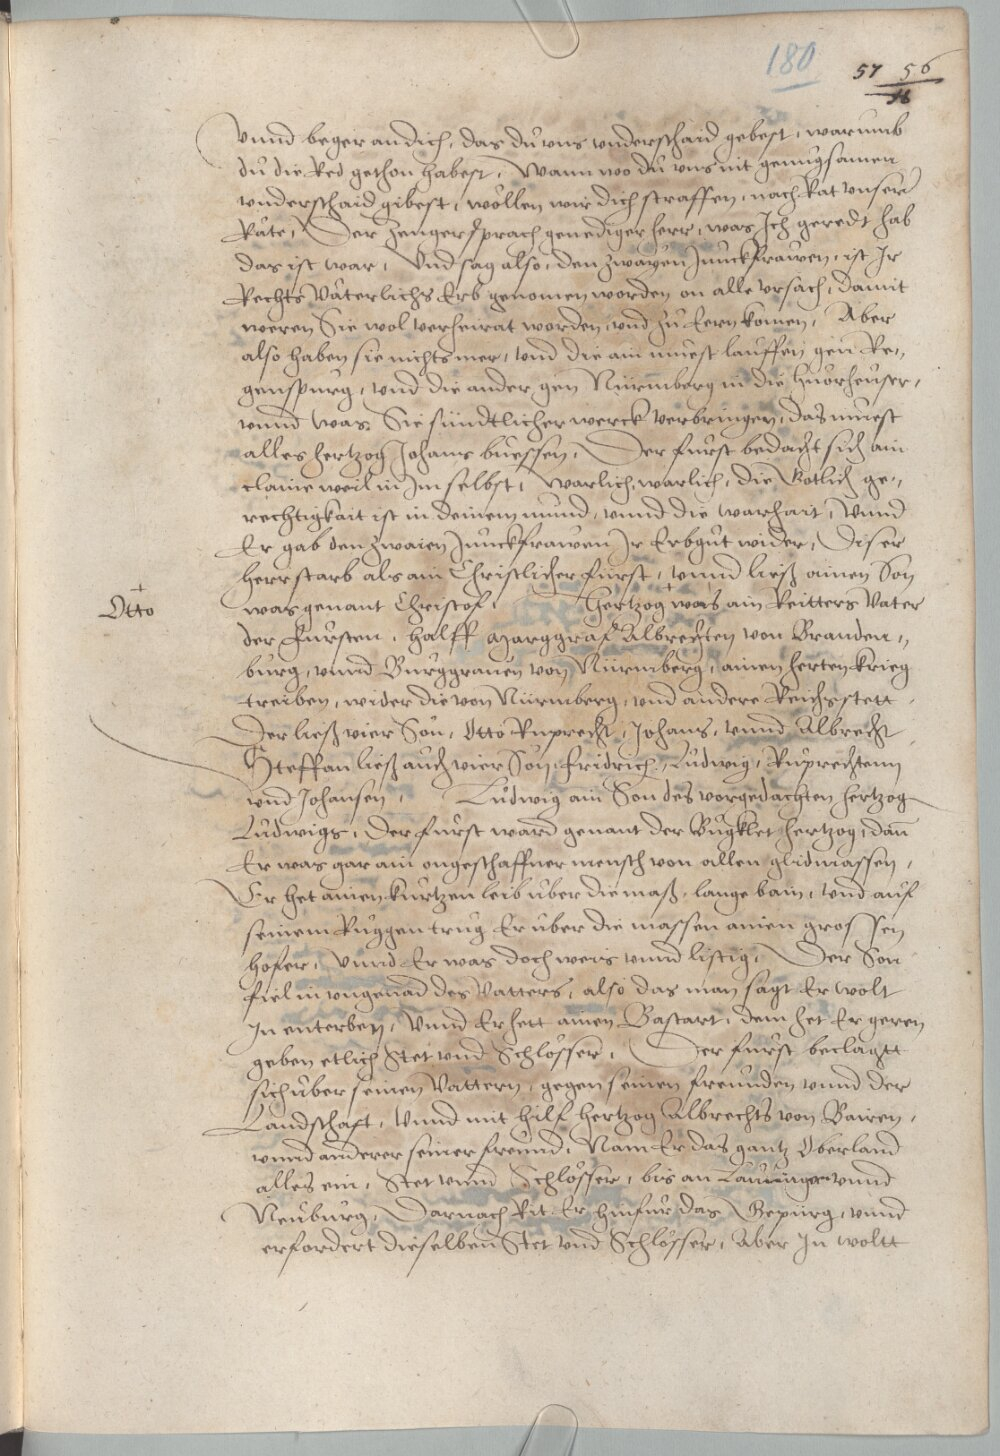 180
57 56
18
Vnnd beger an dich, das du vns vnderschaid gebest, warumb
du die Red gethon habest, Wann wo du vns nit genugsamen
vnderschaid gibest, wöllen wir dich straffen, nach Rat vnser
Räte, Der Zenger sprach genediger herr, was Ich geredt hab
das ist war, Vnd sag also, den zwayen Junckfrawen, ist Ir
Rechts Väterlichs Erb genomen worden on alle vrsach, damit
weren Sie wol verheirat worden, vnd zu Eern komen, Aber
also haben sie nichts mer, vnd die ain muest lauffen gen Re„
genspurg, vnd die ander gen Nürmberg in die huorheuser,
vnnd was Sie sündtlicher werck verbringen, das muest
alles hertzog Johans buessen, Der furst bedacht sich ain
claine weil in Im selbst, Warlich, warlich, die Gotlich ge„
rechtigkait ist in deinem mund, vnnd die warhait, Vnnd
Er gab den zwaien Junckfrawen Ir Erbgut wider, Diser
herr starb als ain Christlicher furst, vnnd ließ ainen Son
was genant Christof, + hertzog was ain Reitters Vater
+ Otto
der fursten, halff Marggraf Albrechten von Branden„
burg, vnnd Burggrauen von Nürmberg, ainen herten krieg
treiben, wider die von Nürmberg, vnd andere Reichsstett
Der ließ vier Son, Otto Ruprecht, Johans, vnnd Albrecht
Steffan ließ auch vier Son, fridrich, Ludwig, Ruprechtenn
vnd Johansen, Ludwig ain Son des vorgedachten hertzog
Ludwigs, der furst ward genant der Bugklet hertzog, dan
Er was gar ain ongeschaffner mensch von allen glidmassen,
Er het ainen kurtzen leib uber die maß, lange bain, vnd auf
seinem Ruggen trug Er uber die massen ainen grossen
hofer, Vnnd Er was doch weis vnnd listig, Der Son
fiel in vngenad des Vatters, also das man sagt Er wolt
In enterben, Vnnd Er hett ainen Bastart, dem het Er geren
geben etlich Stet vnd Schlösser, Der furst beclagtt
sich uber seinen Vattern, gegen seinen freunden vnnd der
Landschaft, Vnnd mit hilf hertzog Albrechts von Bairen,
vnnd anderer seiner freund, Nam Er das gantz Oberland
alles ein, Stet vnnd Schlösser, bis an Lauingen vnnd
Neuburg, Darnach Rit Er hinfur das Gepürg, vnnd
erfordert dieselben Stet vnd Schlösser, Aber In woltt